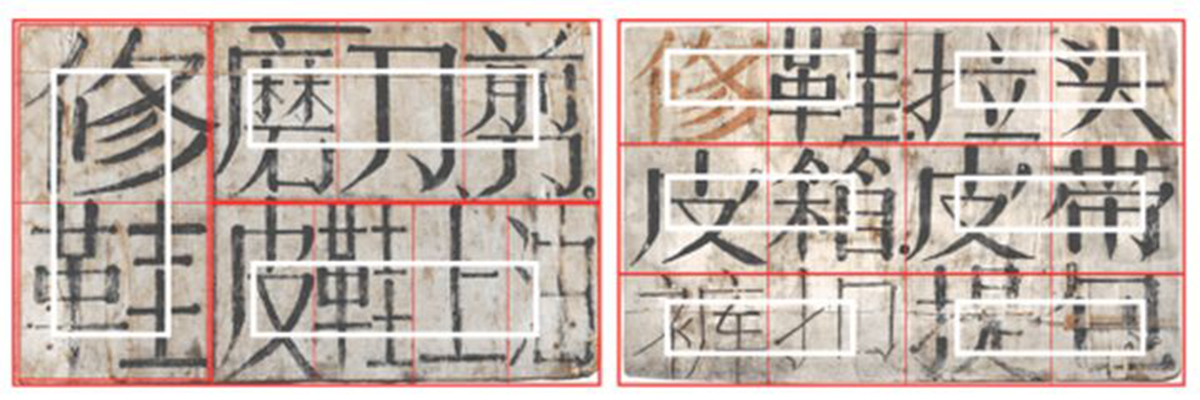 修鞋
磨刀、剪。
皮鞋上油
修鞋.拉头
皮箱.皮带
裤扣 提包